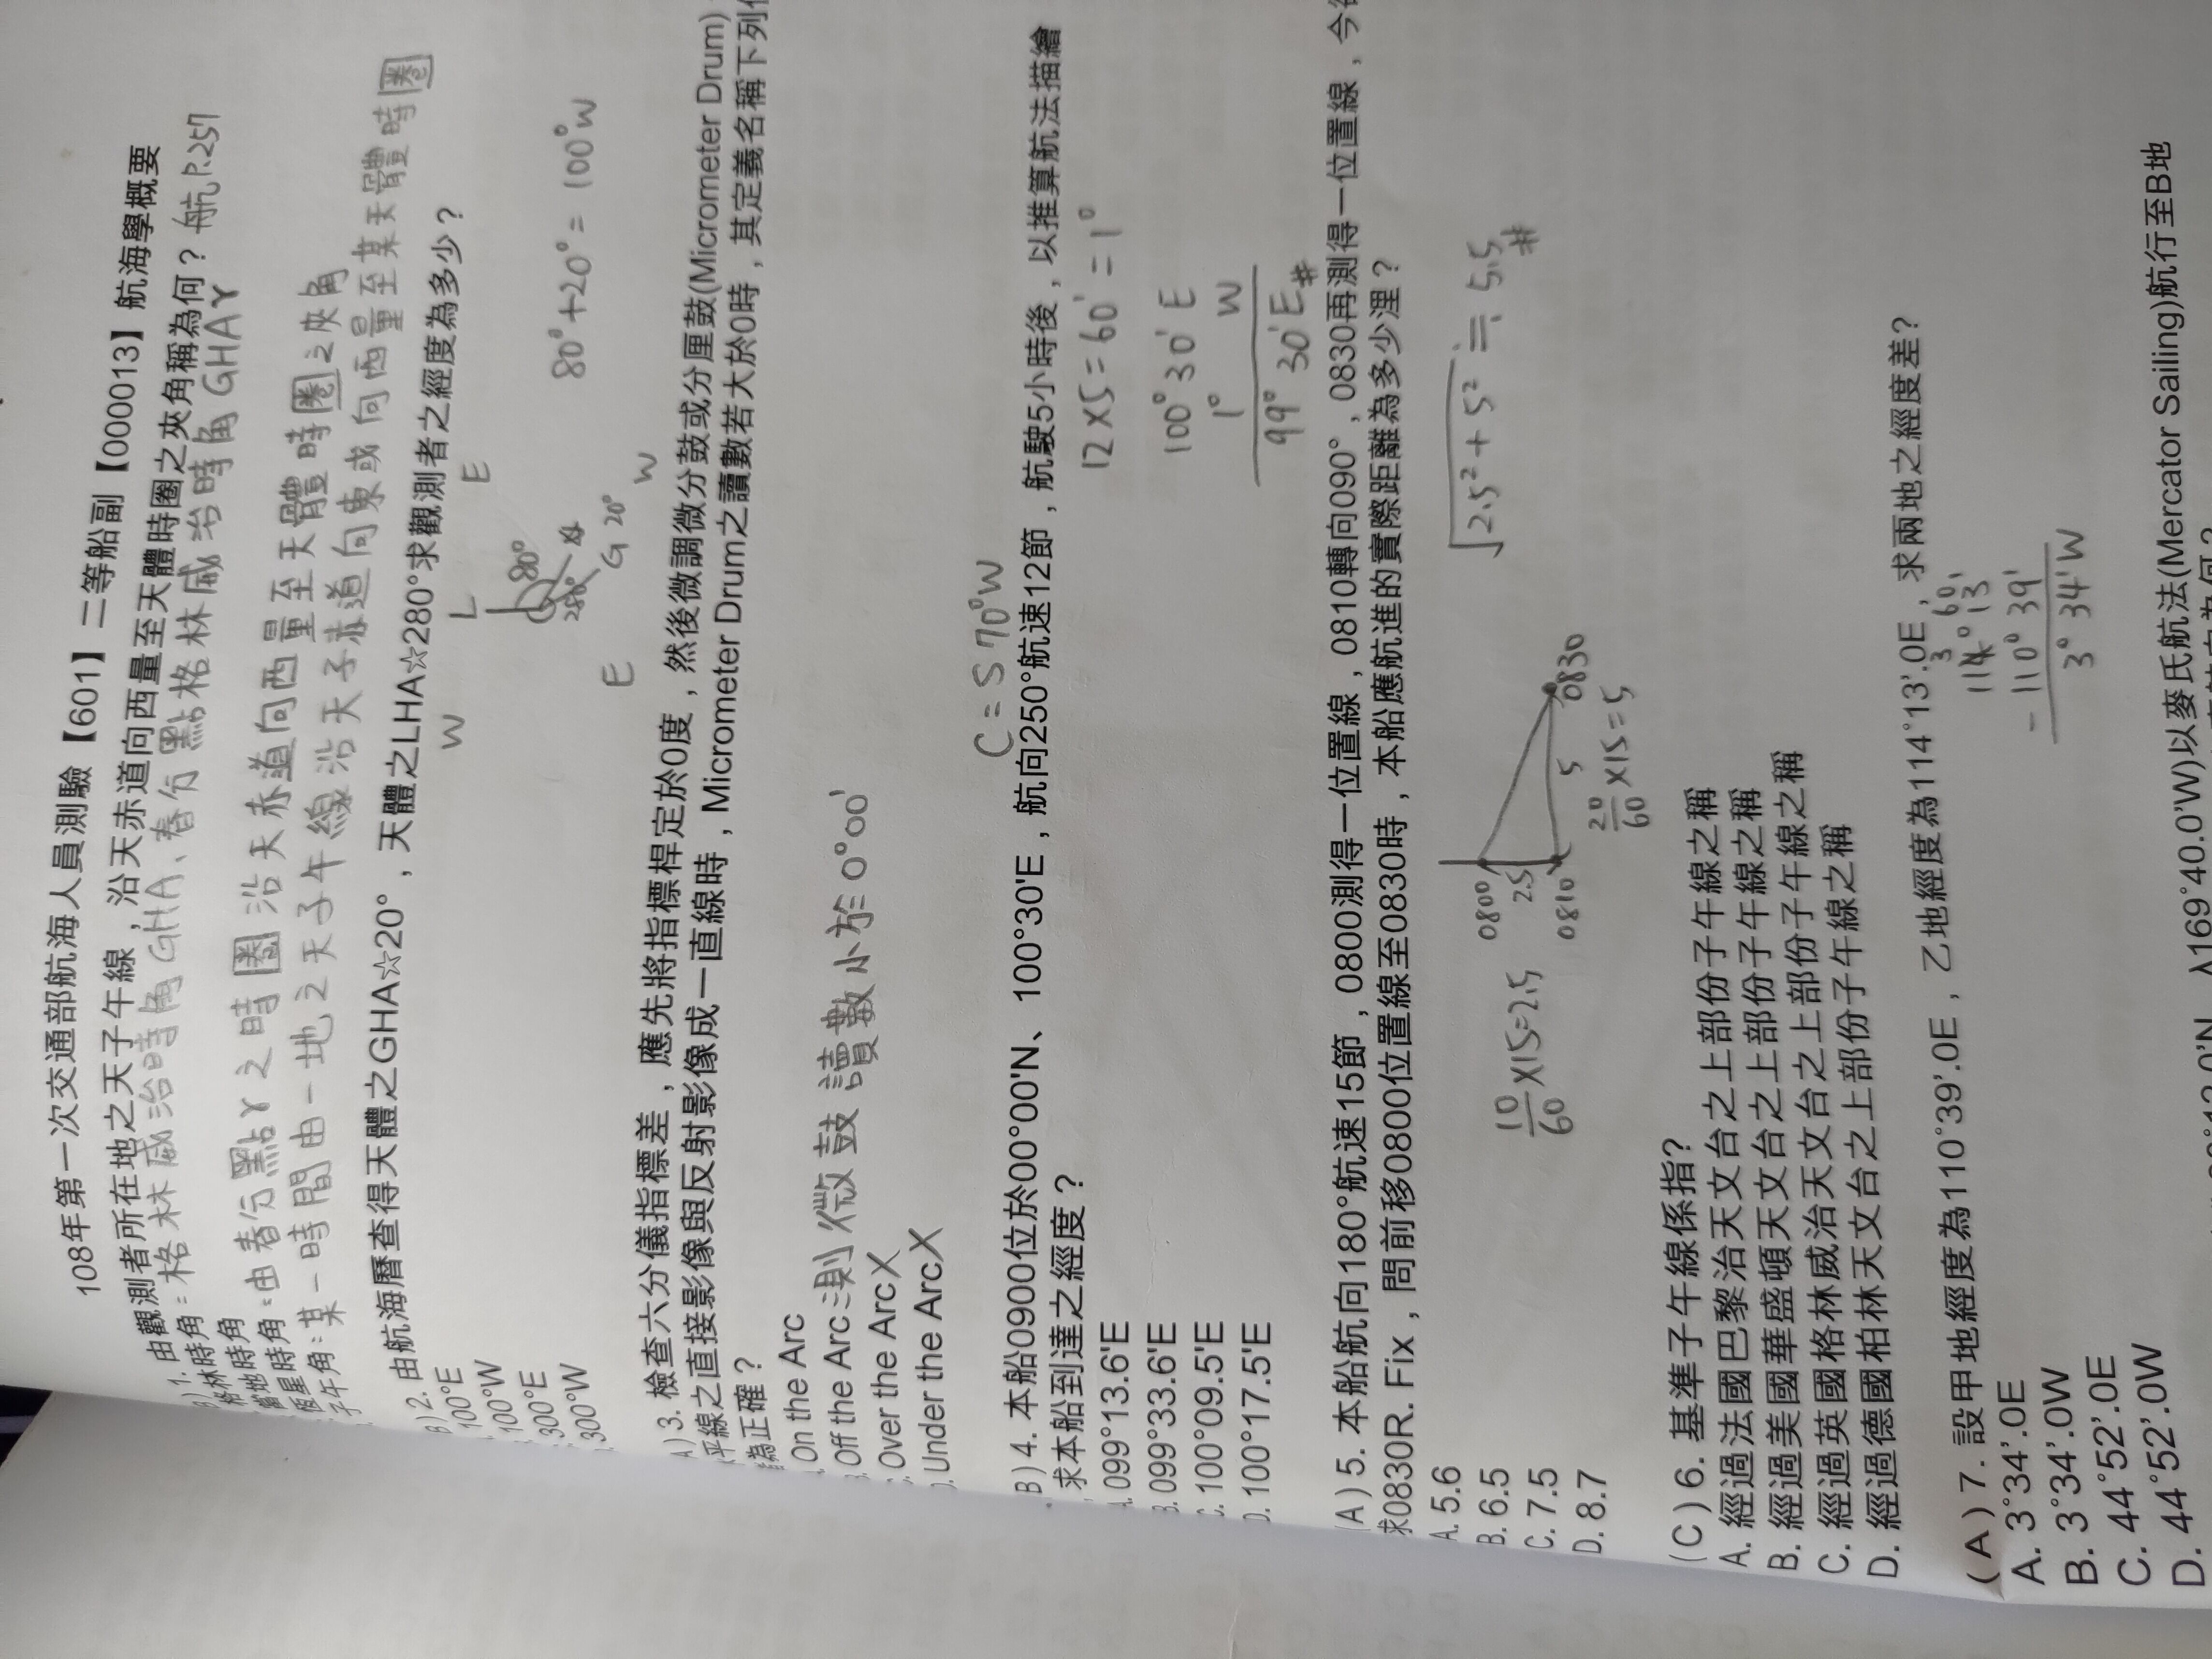 108年第一次交通部航海人員測驗【601】二等船副【000013】航海學概要
)1. 由觀測者所在地之天子午線，沿天赤道向西量至天體時圈之夾角稱為何？航P.257
格林時角：格林威治時角GHA、春分點格林威治時角GHAγ
當地時角
恆星時角：由春分點γ之時圈沿天赤道向西量至天體時圈之夾角
子午角：某一時間由一地之天子午線沿天赤道向東或向西量至某天體時圈
B)2. 由航海曆查得天體之GHA☆20°，天體之LHA☆280°求觀測者之經度為多少？
100°E
100°W
300°E
300°W
W L E
80°
280°
G 20°
E W
80°+20°=100°W
A)3. 檢查六分儀指標差，應先將指標桿定於0度，然後微調微分鼓或分厘鼓(Micrometer Drum)
平線之直接影像與反射影像成一直線時，Micrometer Drum之讀數若大於0時，其定義名稱下列
為正確？
On the Arc
Off the Arc：測微鼓讀數小於0°00'
Over the Arc X
D. Under the Arc X
C=S70°W
B)4. 本船0900位於00°00'N、100°30'E，航向250°航速12節，航駛5小時後，以推算航法描繪
求本船到達之經度？
A. 099°13.6'E
B. 099°33.6'E
C. 100°09.5'E
D. 100°17.5'E
12×5=60'=1°
100°30'E
1° W
99°30'E#
(A)5. 本船航向180°航速15節，0800測得一位置線，0810轉向090°，0830再測得一位置線，今
求0830R. Fix，問前移0800位置線至0830時，本船應航進的實際距離為多少浬？
A. 5.6
B. 6.5
C. 7.5
D. 8.7
10/60×15=2.5
0800
2.5
0810
5
0830
20/60×15=5
√2.5²+5²≒5.5#
(C)6. 基準子午線係指?
A. 經過法國巴黎治天文台之上部份子午線之稱
B. 經過美國華盛頓天文台之上部份子午線之稱
C. 經過英國格林威治天文台之上部份子午線之稱
D. 經過德國柏林天文台之上部份子午線之稱
(A)7. 設甲地經度為110°39'.0E，乙地經度為114°13'.0E，求兩地之經度差?
A. 3°34'.0E
B. 3°34'.0W
C. 44°52'.0E
D. 44°52'.0W
3 60'
114°13'
-110°39'
3°34'W
λ169°40.0"W)以麥氏航法(Mercator Sailing)航行至B地